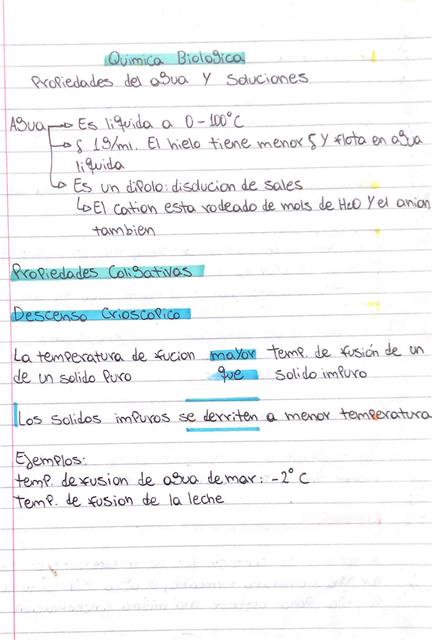 Quimica Biologica
Propiedades del agua y soluciones
Agua → Es liquida a 0-100°C
→ δ 1g/ml. El hielo tiene menor δ y flota en agua
liquida
→ Es un dipolo: disducion de sales
↳ El cation esta rodeado de mols de H2O y el anion
tambien
Propiedades Coligativas
Descenso Crioscopico
La temperatura de fucion mayor temp. de fusión de un
de un solido puro que solido impuro
Los solidos impuros se derriten a menor temperatura
Ejemplos:
temp. de fusion de agua de mar: -2° C
Temp. de fusion de la leche